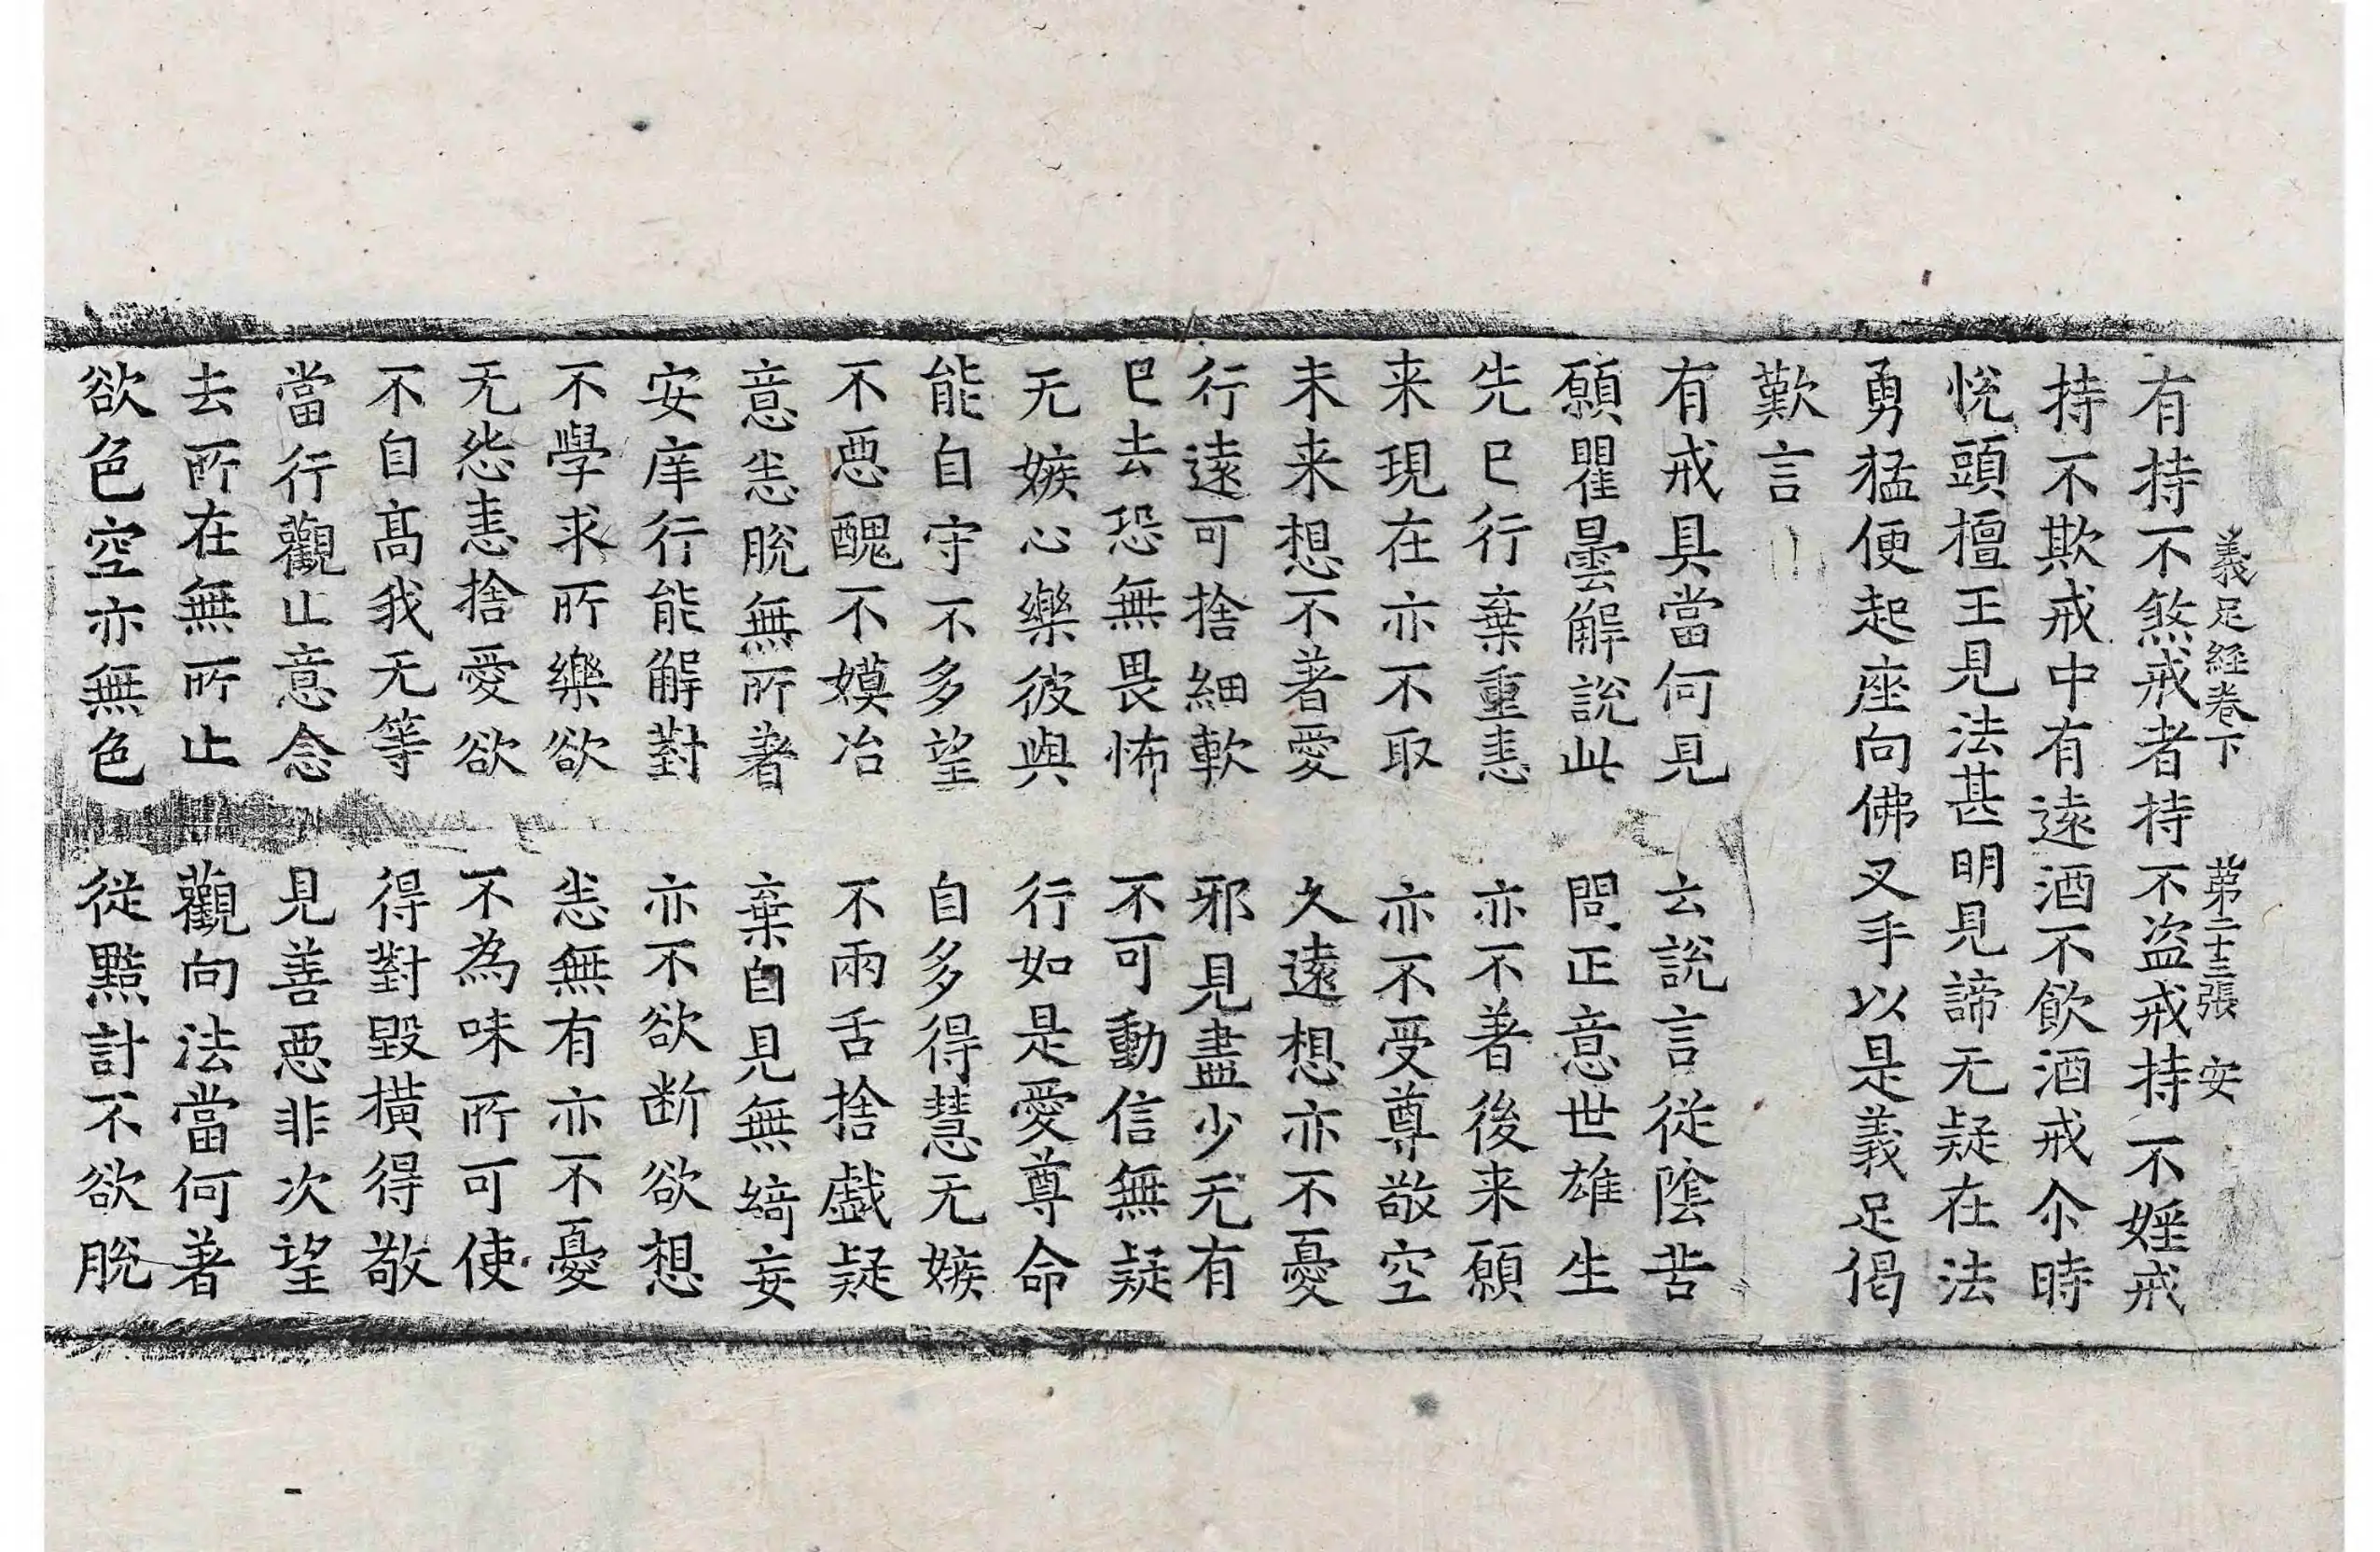 義足經卷下 第二十三張 安
有持不煞戒者持不盜戒持不婬戒
持不欺戒中有遠酒不飲酒戒尒時
悅頭檀王見法甚明見諦无疑在法
勇猛便起座向佛叉手以是義足偈
歎言
有戒具當何見 云說言從陰苦
願瞿曇解說此 問正意世雄生
先已行棄重恚 亦不著後来願
来現在亦不取 亦不受尊敬空
未来想不著愛 久遠想亦不憂
行遠可捨細軟 邪見盡少无有
已去恐無畏怖 不可動信無疑
无嫉心樂彼與 行如是愛尊命
能自守不多望 自多得慧无嫉
不惡醜不嫫冶 不兩舌捨戲疑
意恙脫無所著 棄自見無綺妄
安庠行能解對 亦不欲断欲想
不學求所樂欲 恙無有亦不憂
无怨恚捨愛欲 不為味所可使
不自髙我无等 得對毀橫得敬
當行觀止意念 見善惡非次望
去所在無所止 觀向法當何著
欲色空亦無色 從黠計不欲脫